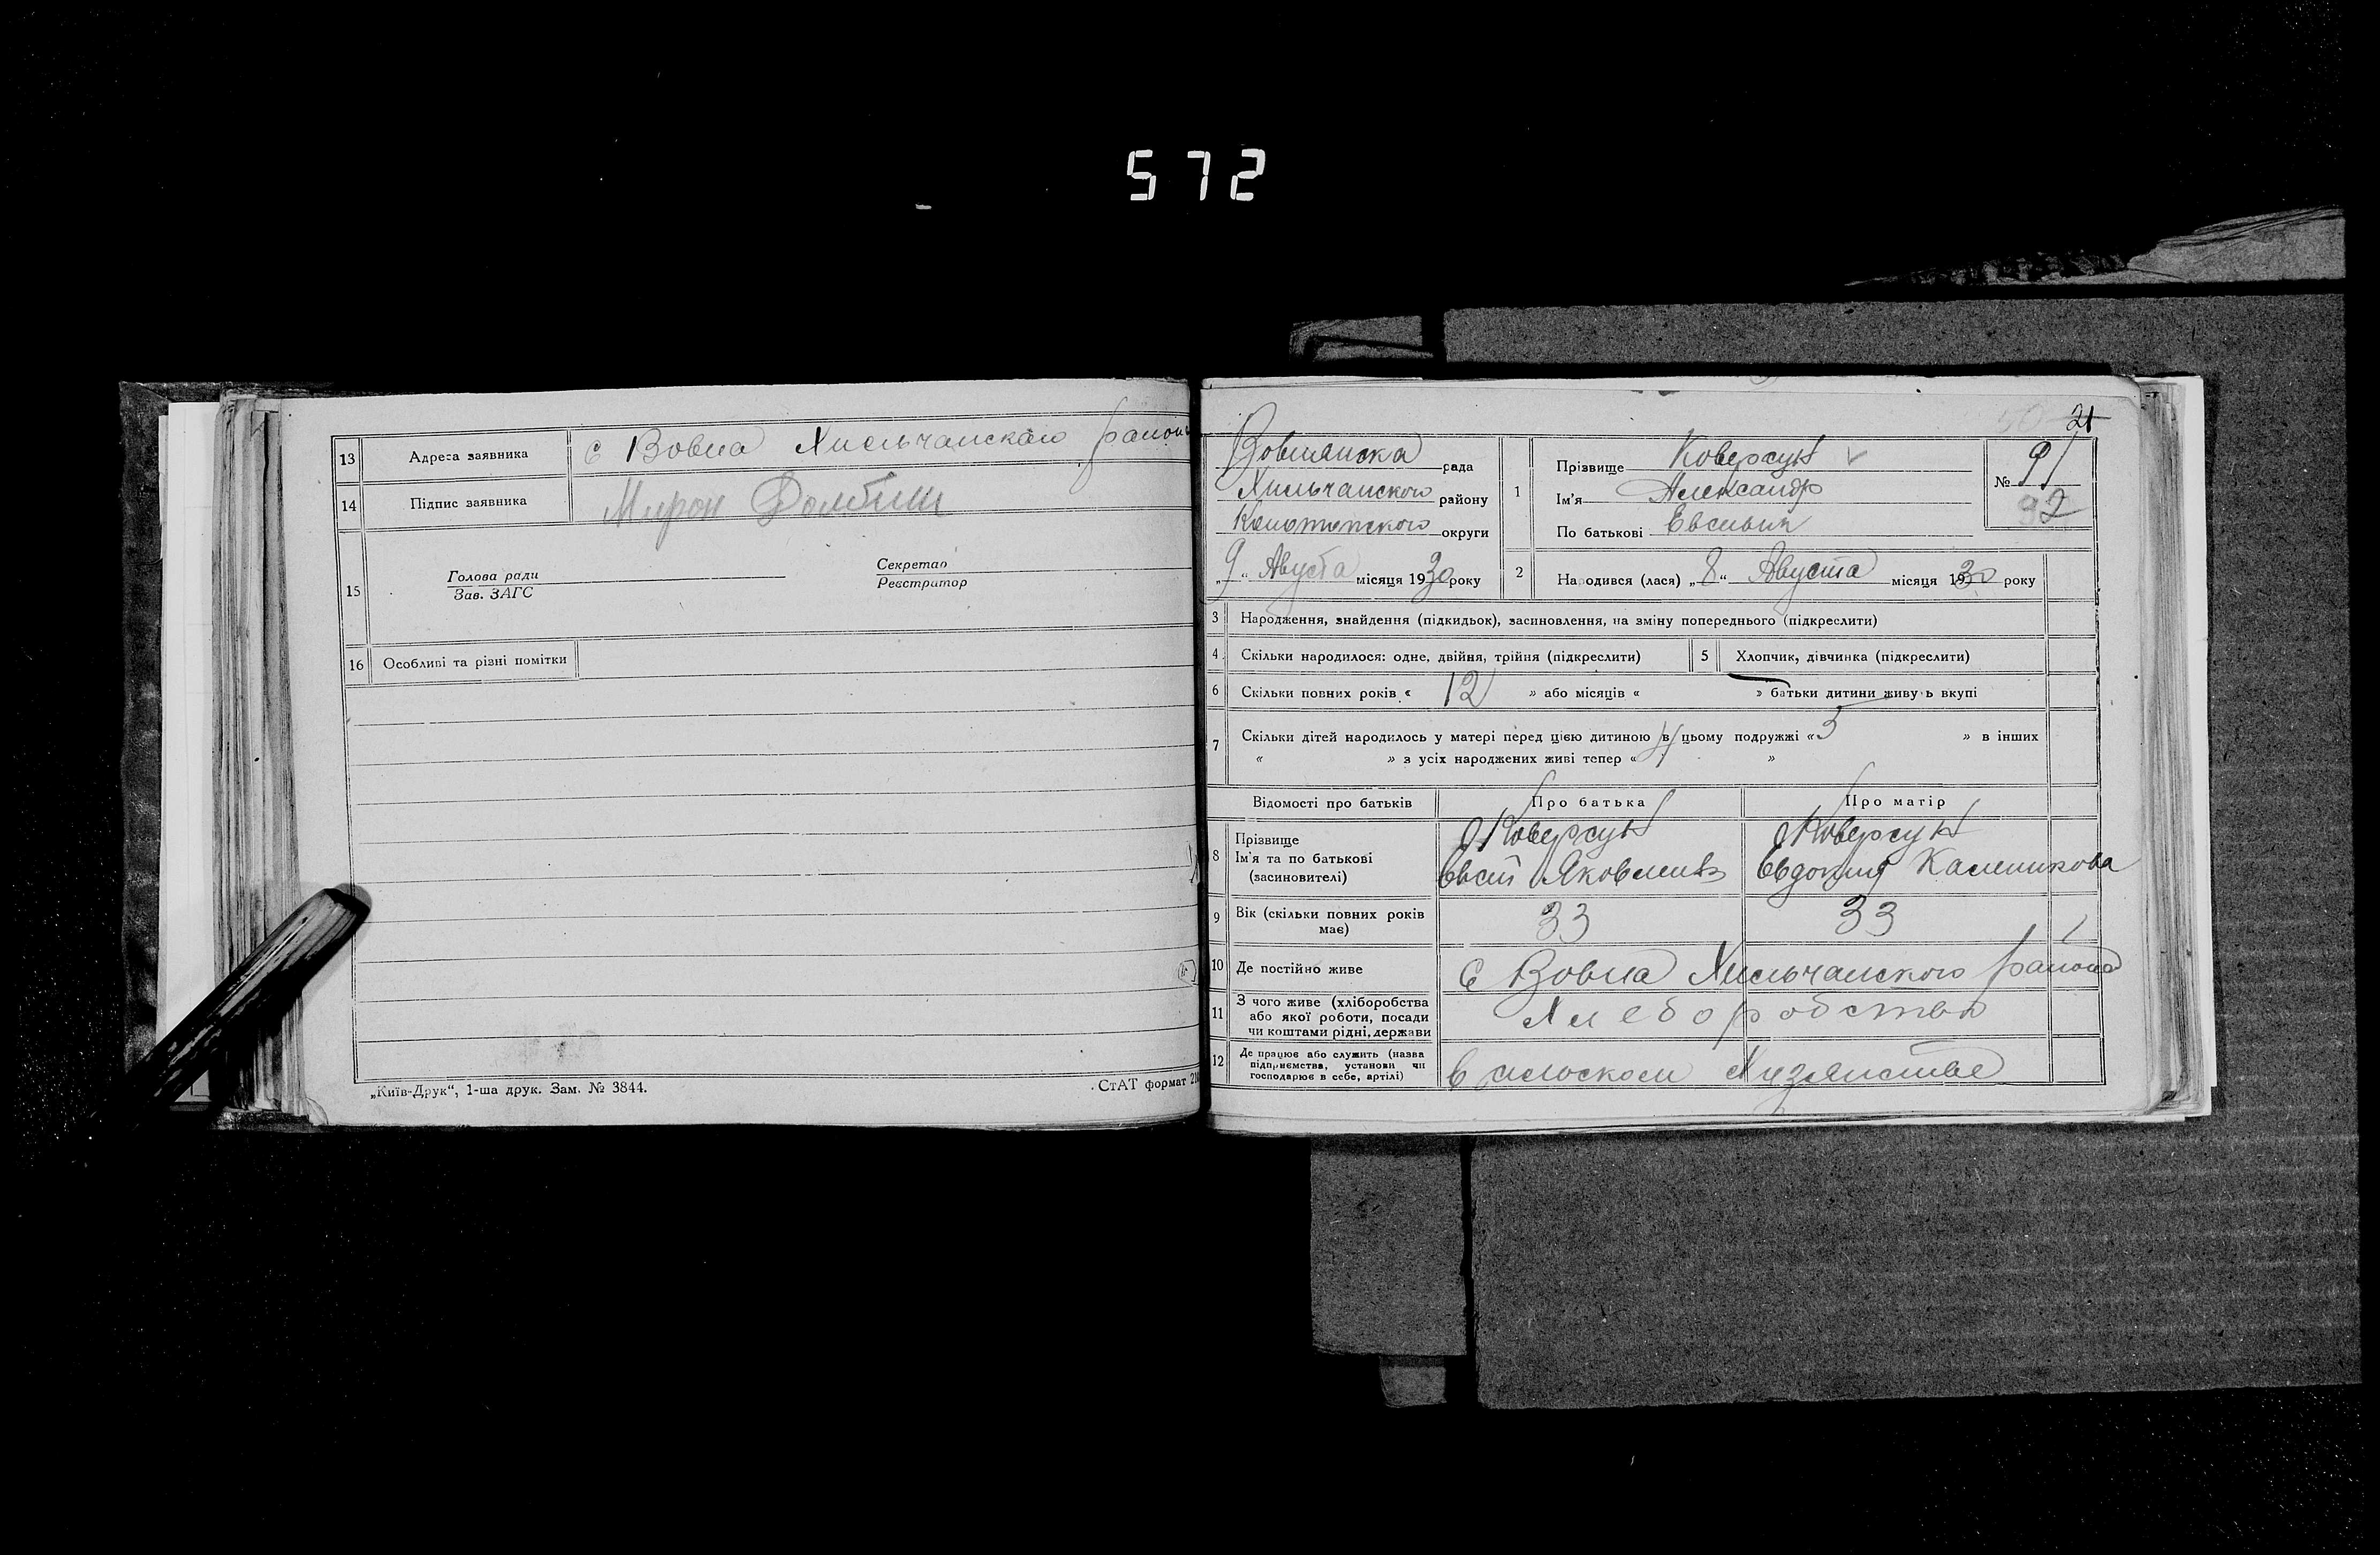 572
13 Адреса заявника С Вовна Хильчанскаго района
14 Підпис заявника Мирон Долбиш
15 Голова ради Секретар
Зав. ЗАГС Реєстратор
16 Особливі та різні помітки
„Київ-Друк“, 1-ша друк. Зам. № 3844. СтАТ формат
21
Вовнянска рада
Хильчанского району
Конотопского округи
„9“ Августа місяця 1930 року
1 Прізвище Коверсун
Ім'я Александр
По батькові
№ 91
92
2 Народився (лася) „8“ Августа місяця 1930 року
3 Народження, знайдення (підкидьок), засиновлення, на зміну попереднього (підкреслити)
4 Скільки народилося: одне, двійня, трійня (підкреслити) 5 Хлопчик, дівчинка (підкреслити)
6 Скільки повних років « 12 » або місяців « » батьки дитини живуть вкупі
7 Скільки дітей народилось у матері перед цією дитиною в цьому подружжі « 5 » в інших
« » з усіх народжених живі тепер « 4 »
Відомості про батьків Про батька Про матір
8 Прізвище Коверсун Коверсун
Ім'я та по батькові Яковлевъ Евдокия Каленикова
(засновителі)
9 Вік (скільки повних років має) 33 33
10 Де постійно живе С Вовна Хильчанского района
11 З чого живе (хліборобства
або якої роботи, посади
чи коштами рідні, держави
Хлеборобства
12 Де працює або служить (назва
підприємства, установи чи
господарює в себе, артілі)
в сельском Хузяистве